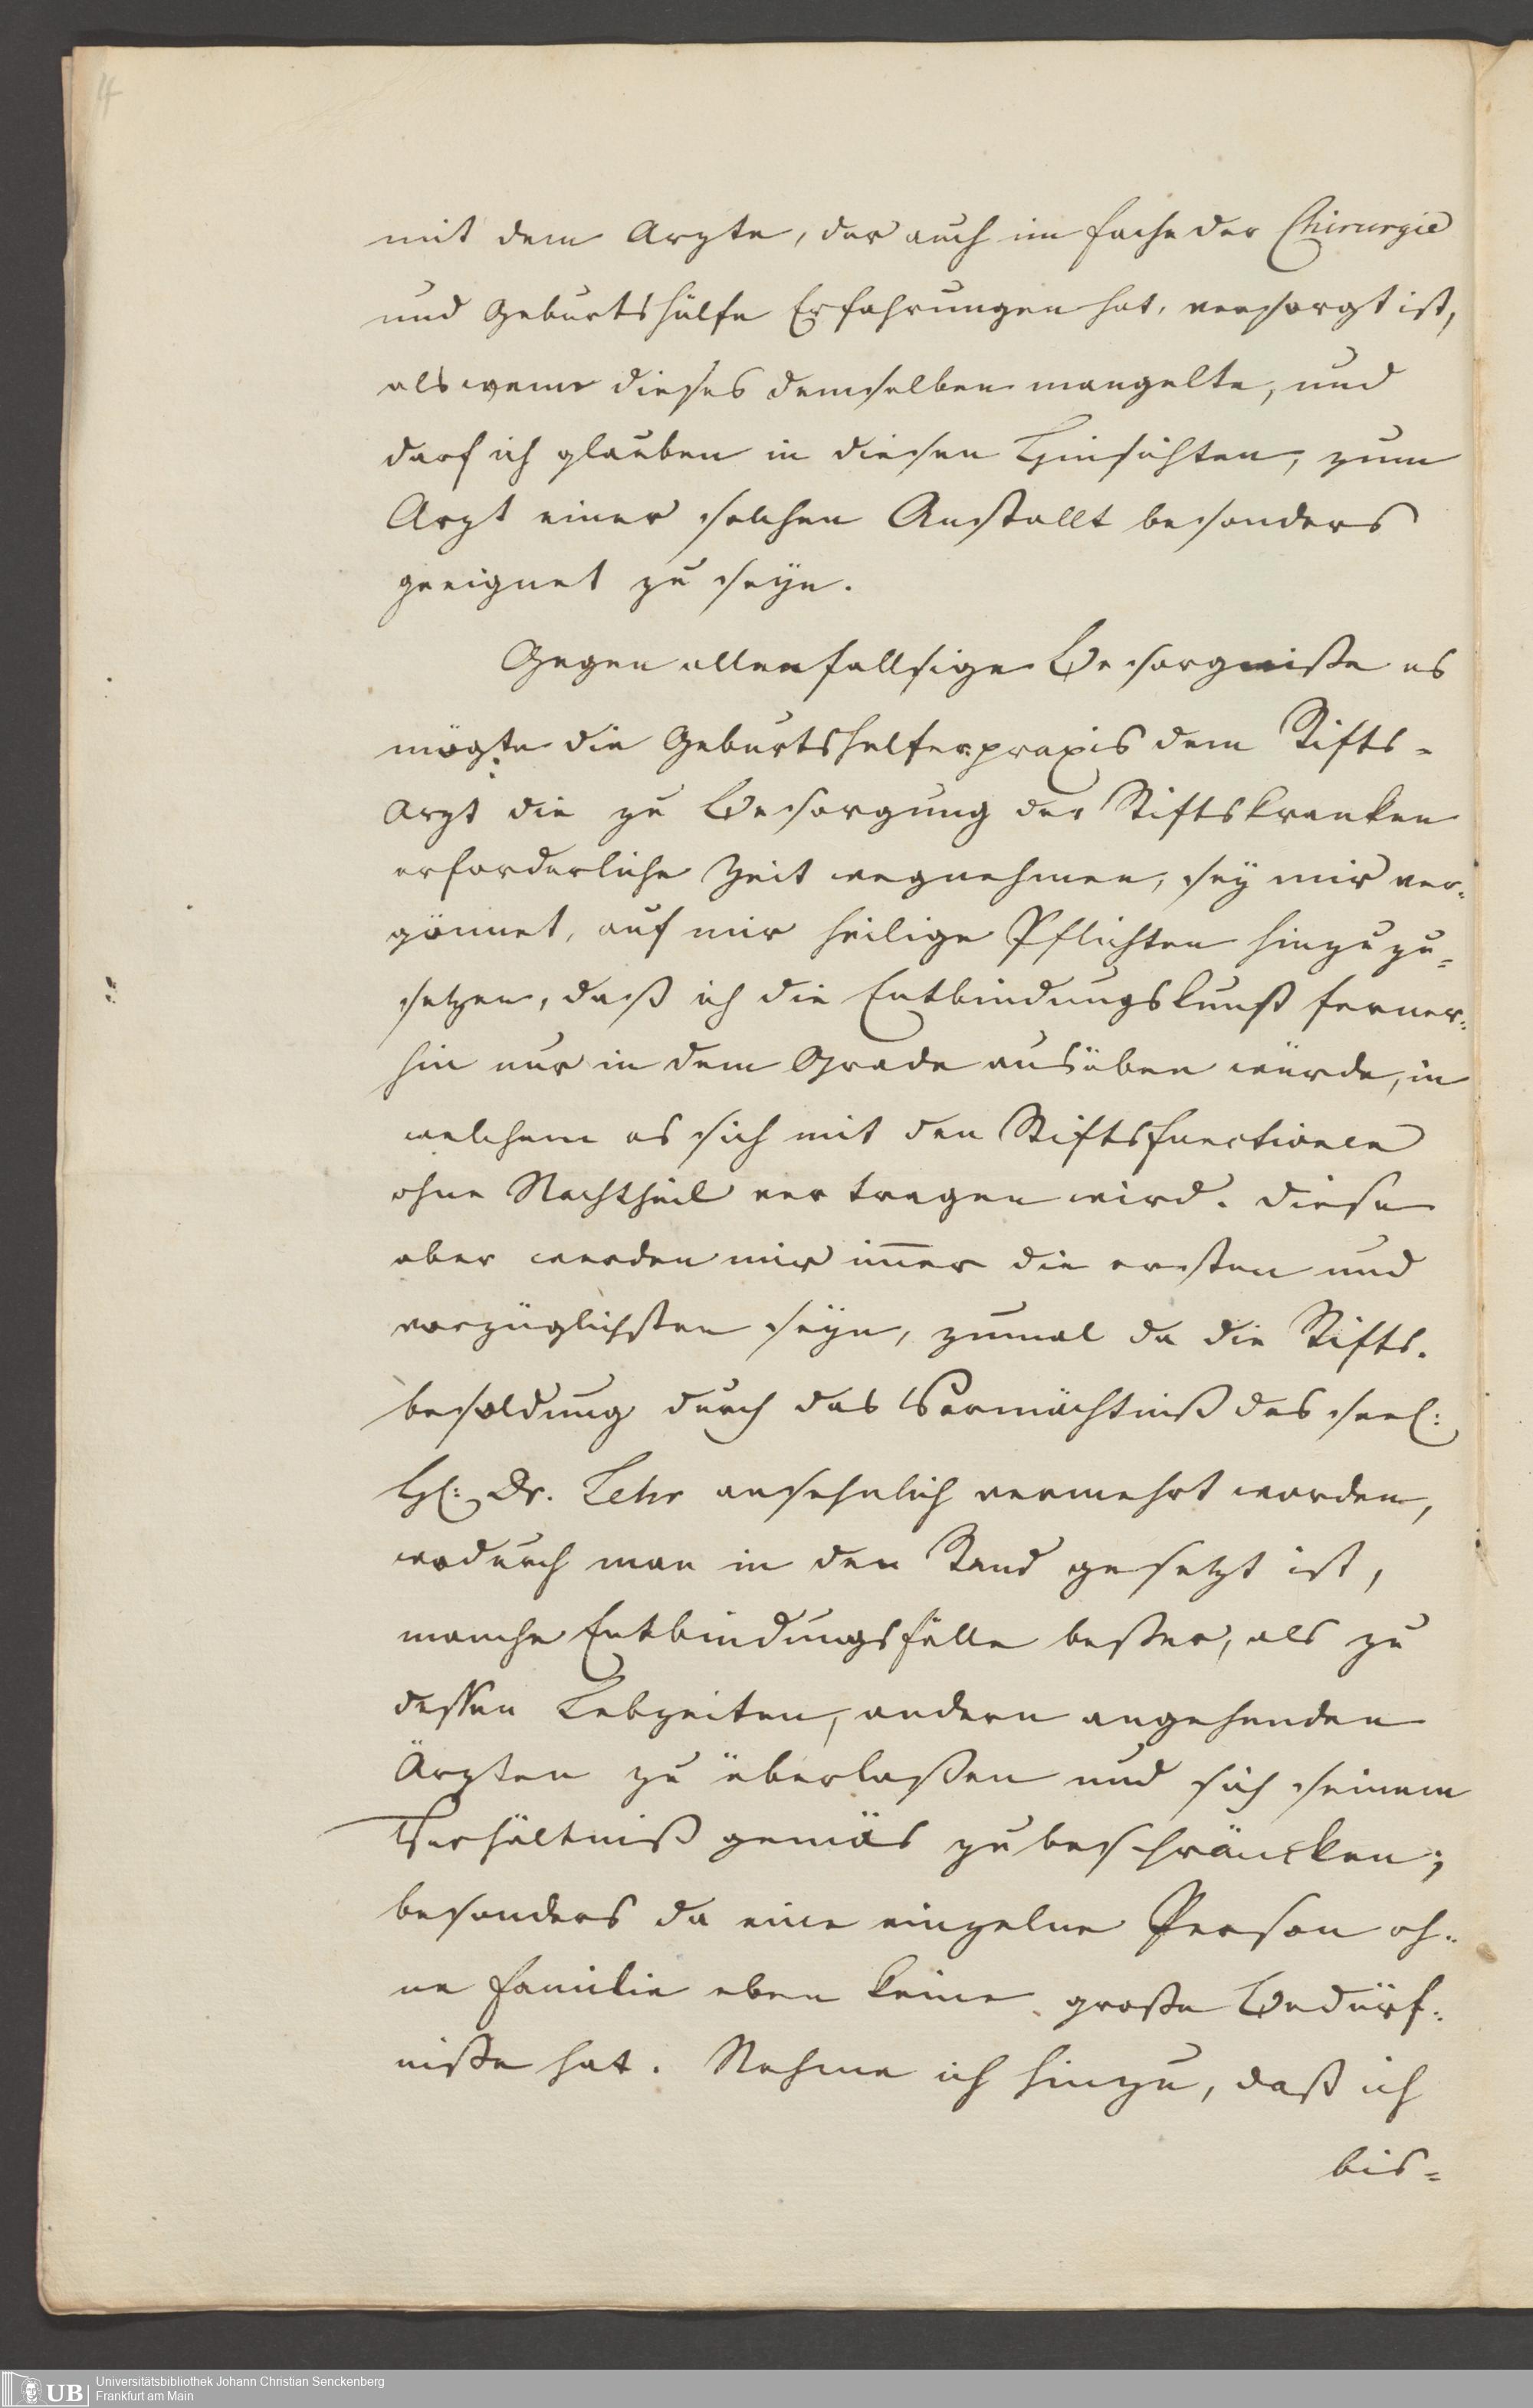 4
mit dem Arzte, der auch im Fache der Chirurgie
und Geburtshülfe Erfahrungen hat, versorgt ist,
als wenn dieses demselben mangelte, und
darf ich glauben in diesen Hinsichten, zum
Arzt einer solchen Anstallt besonders
geeignet zu seÿn.
Gegen allenfallsige Besorgniße es
mögte die Geburtshelferpraxis dem Stifts-
Arzt die zu Besorgung der Stiftskranken
erforderliche Zeit wegnehmen, seÿ mir ver-
gönnet, auf mir heilige Pflichten hinzuzu-
setzen, daß ich die Entbindungskunst ferner-
hin nur in dem Grade ausüben würde, in
welchem es sich mit den Stiftsfunctionen
ohne Nachtheil vertragen wird. Diese
aber werden mir im̅er die ersten und
vorzüglichsten seÿn, zumal da die Stifts-
besoldung durch das Vermächtniß des seel:
H: Dr. Lehr ansehnlich vermehrt worden,
wodurch man in den Stand gesetzt ist,
manche Entbindungsfälle beßer, als zu
dessen Lebzeiten, andern angehenden
Ärzten zu überlaßen und sich seinem
Verhältniß gemäs zu beschräncken;
besonders da eine einzelne Person oh-
ne Familie eben keine große Bedürf-
niße hat. Nehme ich hinzu, daß ich
bis-
UB
Universitätsbibliothek Johann Christian Senckenberg
Frankfurt am Main